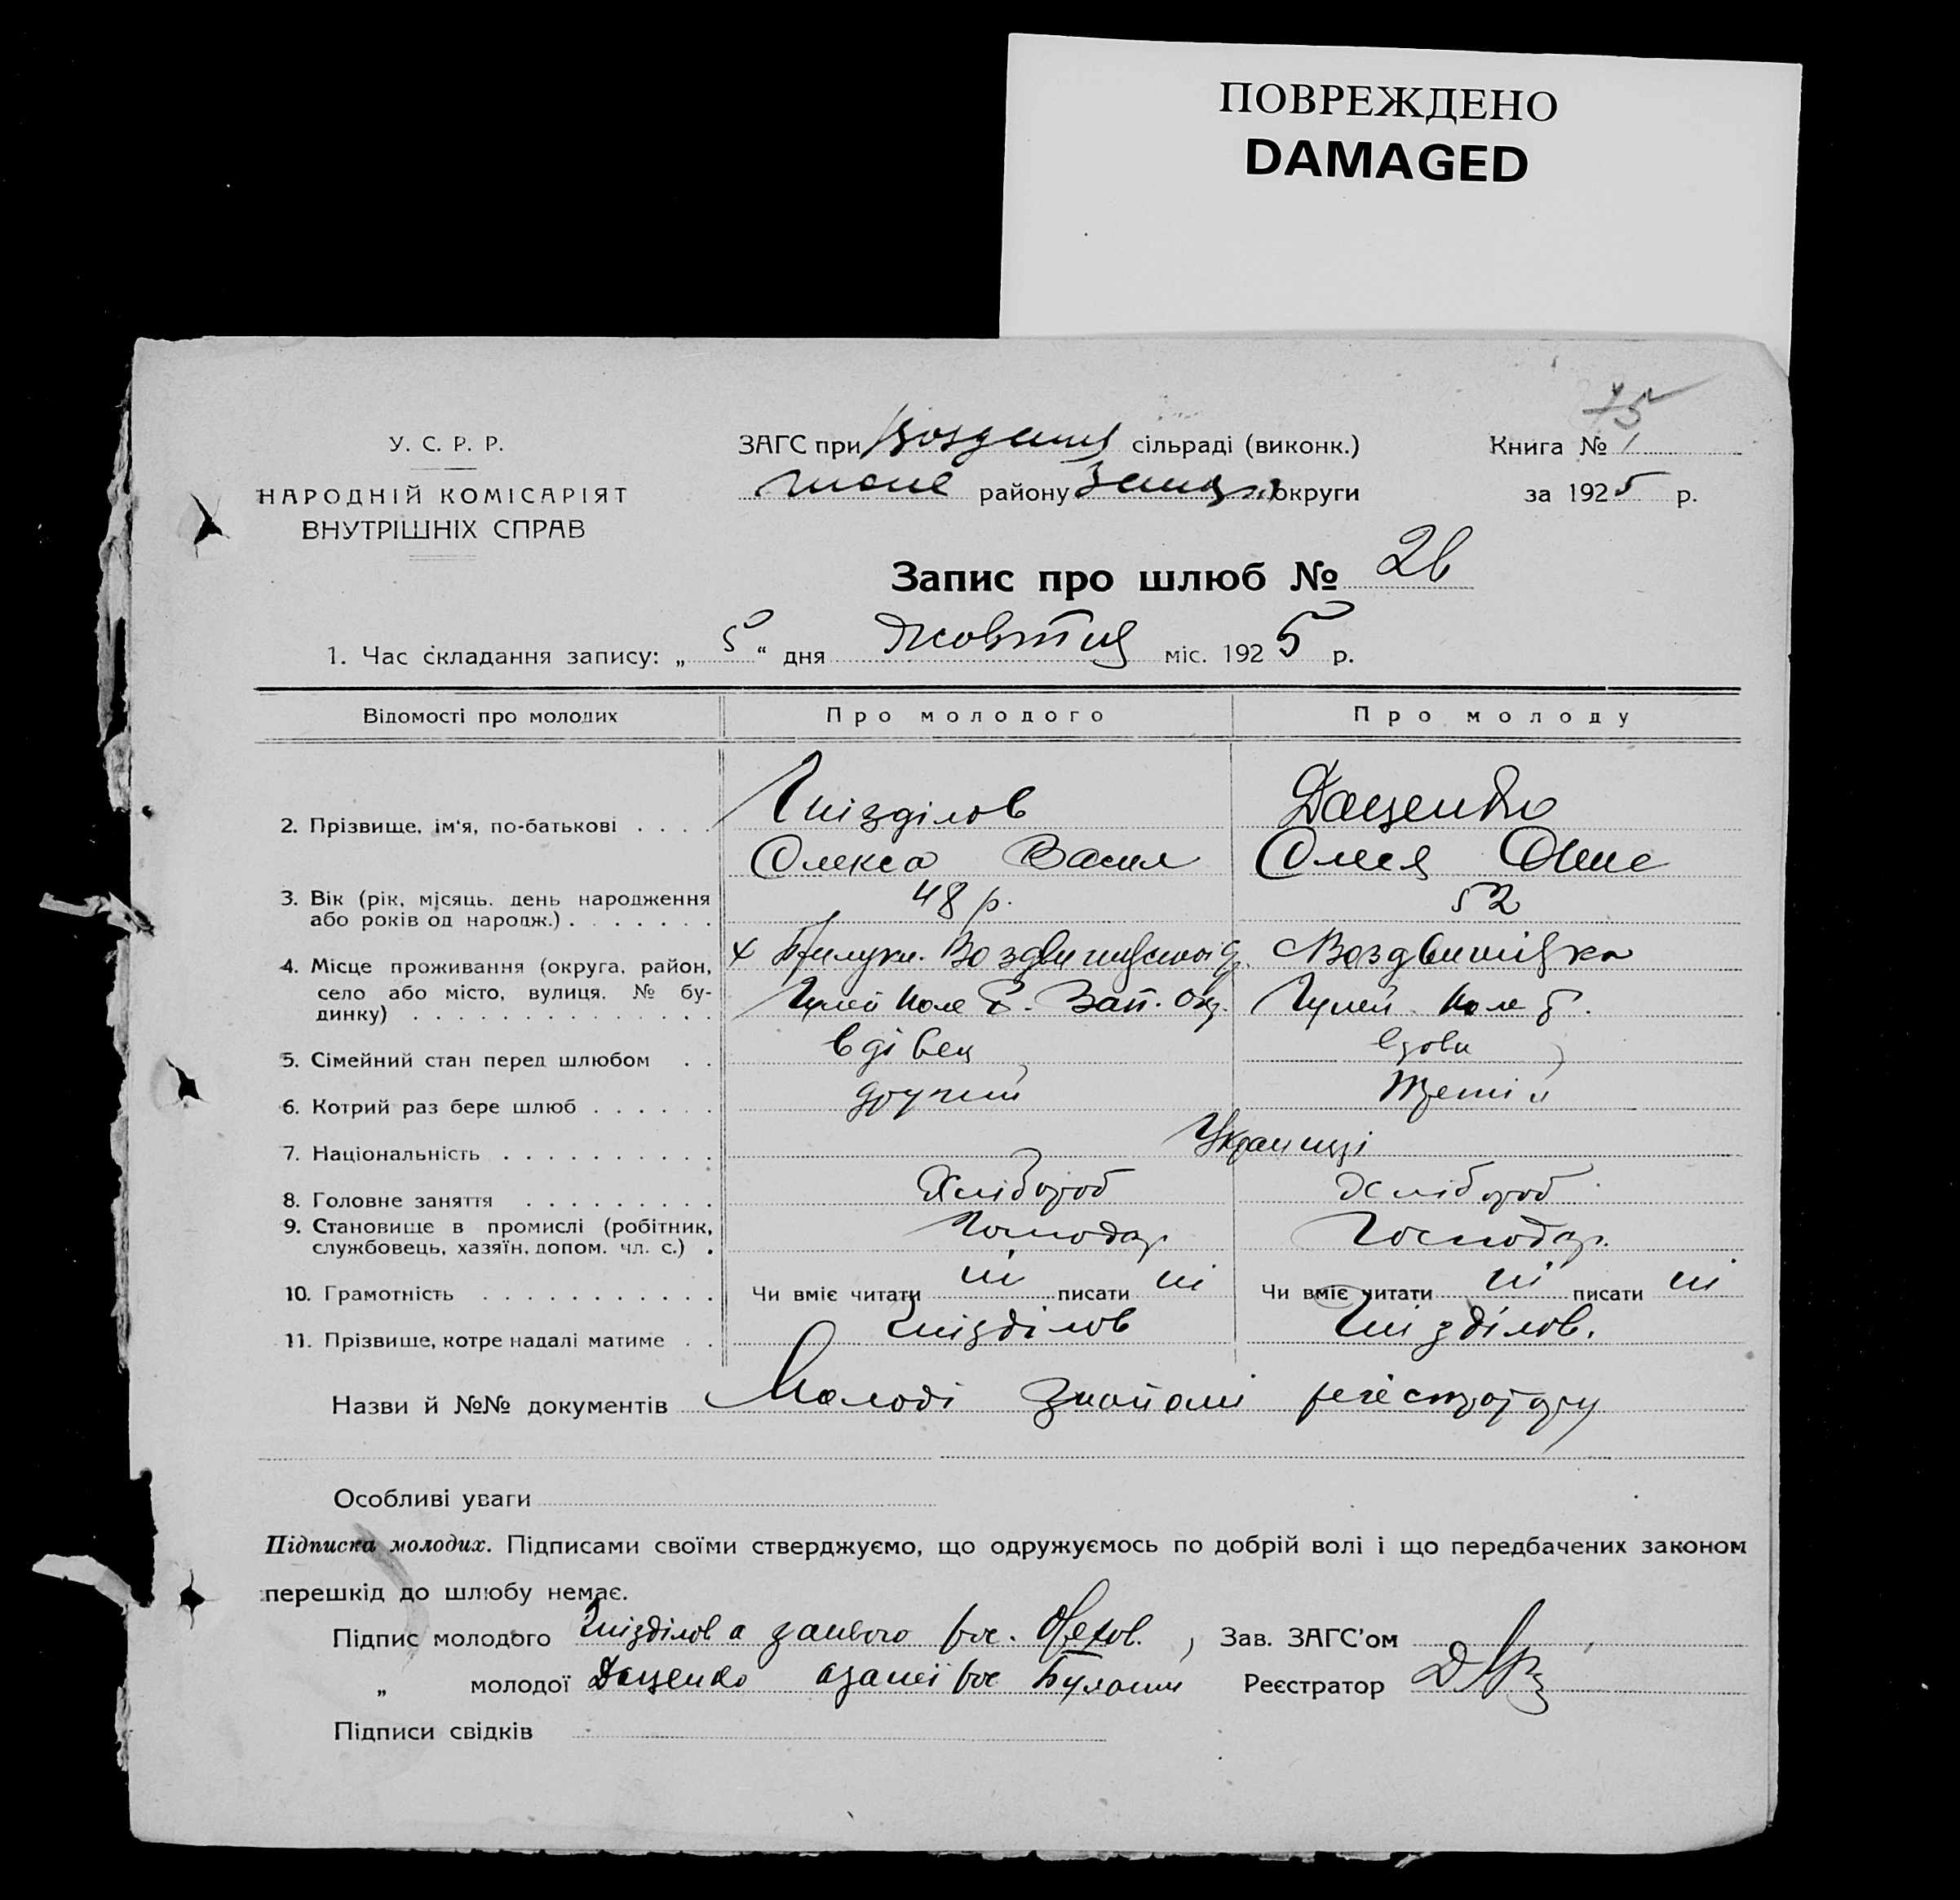 ПОВРЕЖДЕНО
DAMAGED
75
У. С. Р. Р.
НАРОДНІЙ КОМІСАРІЯТ
ВНУТРІШНІХ СПРАВ
ЗАГС при сільраді (виконк.)
району округи
Книга № 1
за 1925 р.
Запис про шлюб № 26
1. Час складання запису: „ 5 “ дня Жовтня міс. 1925 р.
Відомості про молодих Про молодого Про молоду
2. Прізвище, ім‘я, по-батькові . . . . Гнізділов Даценко
Олекса Васил Олеся
3. Вік (рік, місяць, день народження
або років од народж.) . . . . . . . 48 р. 52
4. Місце проживання (округа, район,
село або місто, вулиця, № бу-
динку) . . . . . . . . . . . . . .
х Прилуки. Воздвиж
Гуляй Поле Р. Зап. Окр. Гуляй Поле
5. Сімейний стан перед шлюбом . . вдівец вдова
6. Котрий раз бере шлюб . . . . . . другий третій
7. Національність . . . . . . . . . . Українці
8. Головне заняття . . . . . . . . . Хлібороб Хлібороб
9. Становище в промислі (робітник,
службовець, хазяїн, допом. чл. с.) . Господар Господар.
10. Грамотність . . . . . . . . . . . Чи вміє читати ні писати ні Чи вміє читати ні писати ні
11. Прізвище, котре надалі матиме . . Гнізділов Гнізділов.
Назви й №№ документів Молоді знайомі реєстратору
Особливі уваги
Підписка молодих. Підписами своїми стверджуємо, що одружуємось по добрій волі і що передбачених законом
перешкід до шлюбу немає.
Підпис молодого Гнізділов а
Зав. ЗАГС’ом
„ молодої Даценко
Реєстратор
Підписи свідків